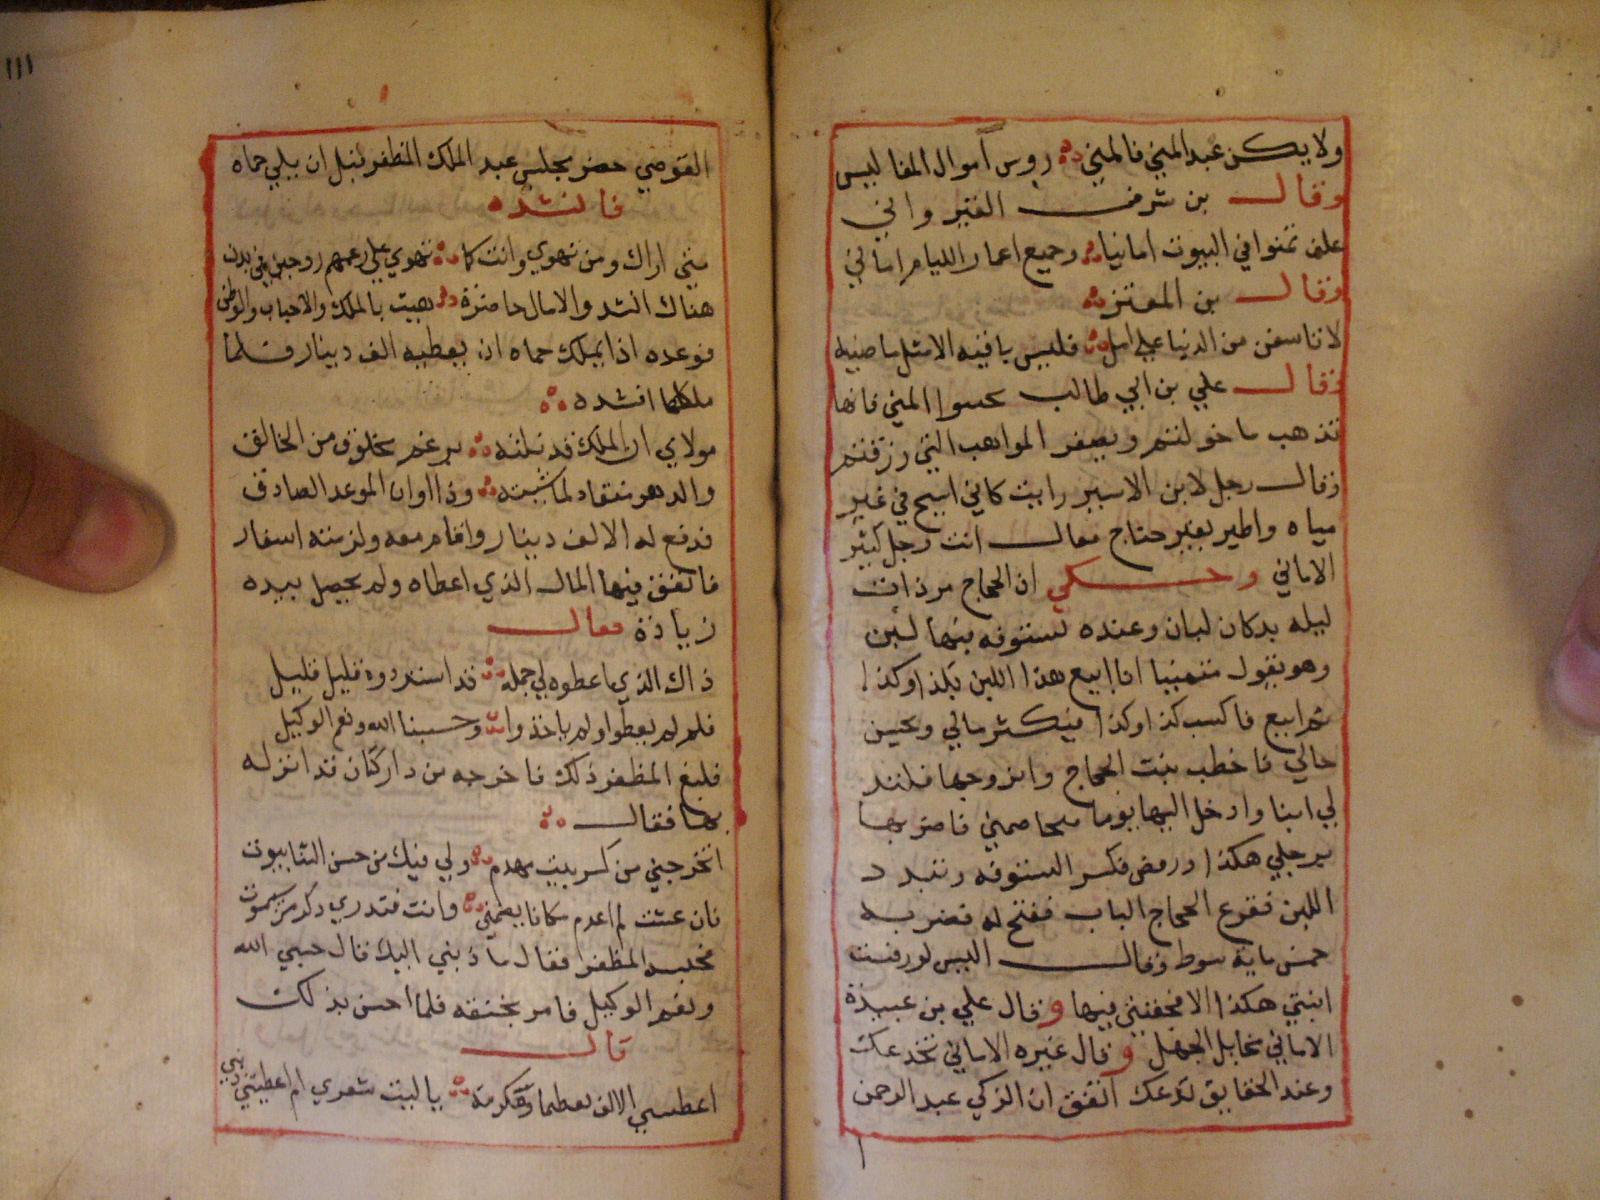 ولا يكن عبد المني فالمني روس أموال المفاليس
وقال بن شرف الفتير واني
علف تمنوا في البيوت امانيا وجميع اعمار الليام اماني
وقال بن المعتز
لا تاسفن من الدنيا علي امل فليس باقيه الا مثل ماضيه
وقال علي بن ابي طالب تجنبوا المني فانها
تذهب ما خولتم ويصغر المواهب التي رزقتم
وقال رجل لابن الاسيبر رايت كاني اسبح في غير
مياه واطير بغير جناح فقال انت رجل كثير
الاماني وحكي ان الحجاج مر ذات
ليله بدكان لبان وعنده بستوقه فيها لبن
وهو يقول متمنيا انا ابيع هذا اللبن بكذا وكذا
ثم ابيع فاكسب كذا وكذا فيكثر مالي ويحسن
حالي فاخطب بنت الحجاج واتزوجها فتلد
لي ابنا وادخل اليها يوما فتخاصمني فاضربها
برجلي هكذا ورفض فكسر البستوقه وتبدد
اللبن فقرع الحجاج الباب ففتح له فضربه
خمس ماية سوط وقال اليس لو رفست
ابنتي هكذا الا فجعتني فيها وقال علي بن عبيدة
الاماني مخايل الجهل وقال غيره الاماني تخدعك
وعند الحقايق تدعك اتفق ان الزكي عبد الرحمن
١١١
القوصي حضر مجلس عبد الملك المظفر قبل ان يلي حماه
فانشده
متي اراك ومن تهوي وانت كما تهوي علي رغمهم روحين في بدن
هناك انشد والامال حاضرة هنيت بالملك والاحباب والوطن
فوعده اذا يملك حماه ان يعطيه الف دينار فلما
ملكها انشده
مولاي ان الملك قد نلته برغم مخلوق من الخالق
والدهر منقاد لما شيته وذا اوان الموعد الصادق
فدفع له الالف دينار واقام معه ولزمته اسفار
فانفق فيها المال الذي اعطاه ولم يحصل بيده
زيادة فقال
ذاك الذي اعطوه لي جملة قد استردوه قليل قليل
فلم لم يعطوا ولم ياخذوا وحسبنا الله ونعم الوكيل
فبلغ المظفر ذلك فاخرجه من دار كان قد انزله
بها فقال
اتخرجني من كسر بيت مهدم ولي فيك من حسن الثنا بيوت
فان عشت لم اعدم مكانا يضمني وانت فتدري ذكر من سيموت
فحبسه المظفر فقال ما ذنبي اليك قال حسبي الله
ونعم الوكيل فامر بخنقه فلما احس بذلك
قال
اعطيتني الالف تعظيما وتكرمة يا ليت شعري ام اعطيتني ديتي